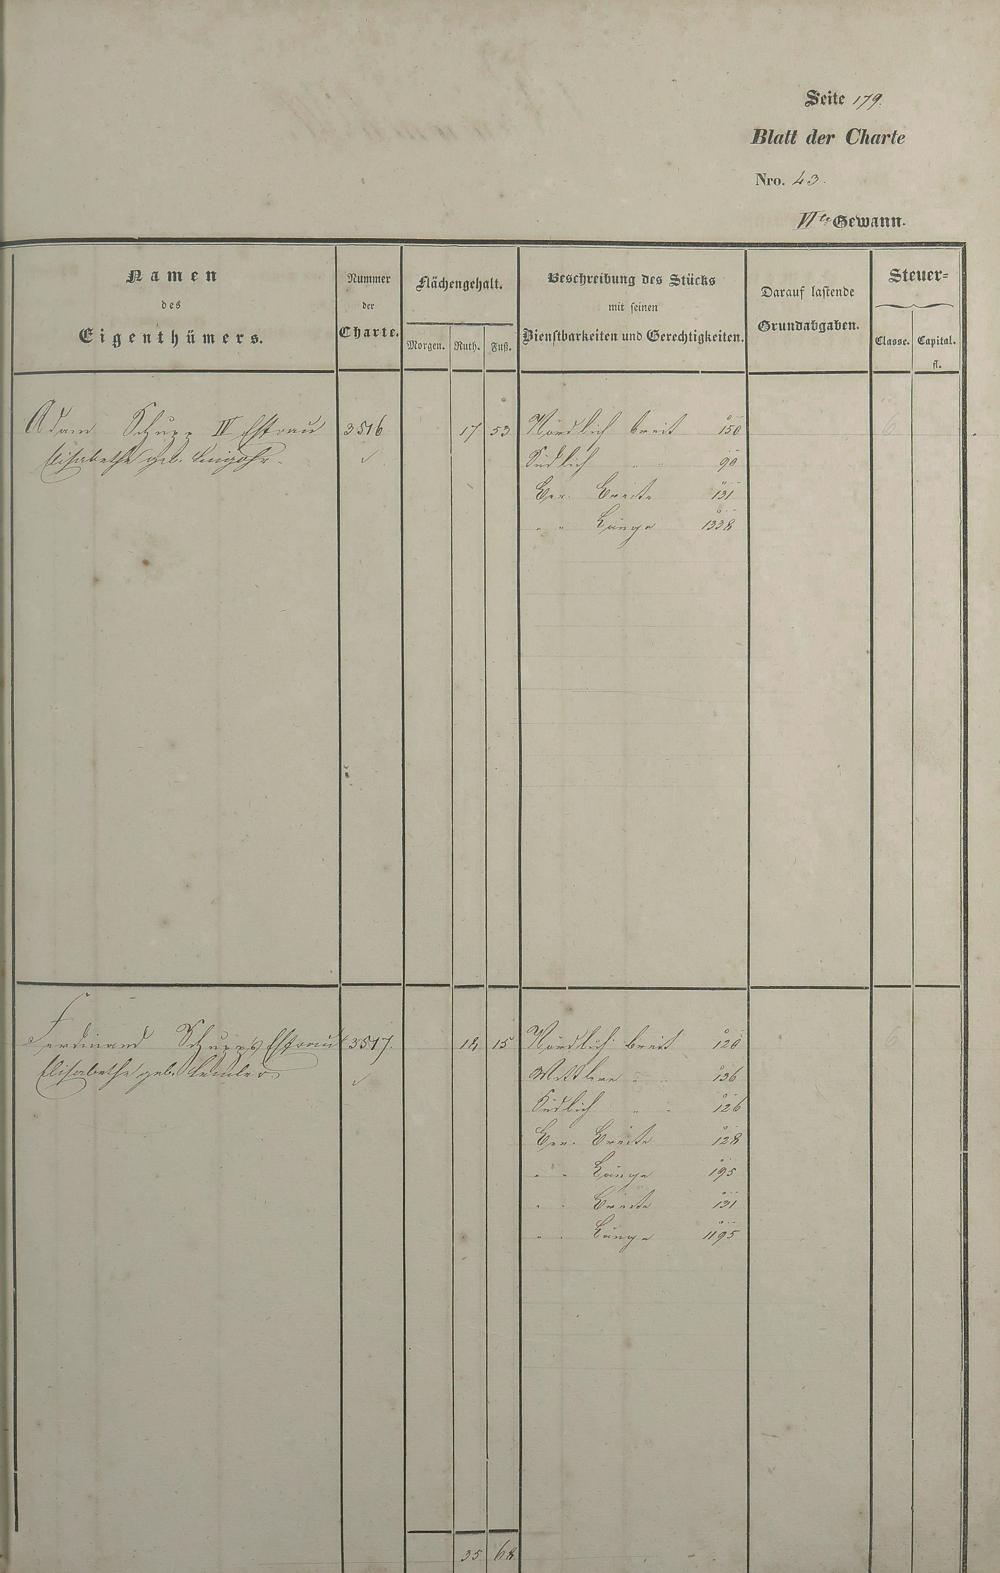 Seite 179.
Blatt der Charte
Nro. 43.
VIte Gewann.
Namen
des
Eigenthümers.
Nummer
der
Charte.
Flächengehalt.
Morgen. Ruth. Fuß.
Beschreibung des Stücks
mit seinen
Dienstbarkeiten und Gerechtigkeiten.
Darauf lastende
Grundabgaben.
Steuer=
Classe. Capital.
fl.
Adam Schupp IV Ehfrau 3516 17 53 Nördlich breit 150 6
Elisabethe geb. Südlich " " 90
Ger. Breite 131
" " Länge 1338
Ferdinand Schupps Ehfrau 3517. 18 15 Nördlich breit 120 6
Elisabethe geb. Mittlere " " 136
Südlich " " 126
Ger. Breite 128
" " Länge 195
" " Breite 131
" " Länge 1195
35 68